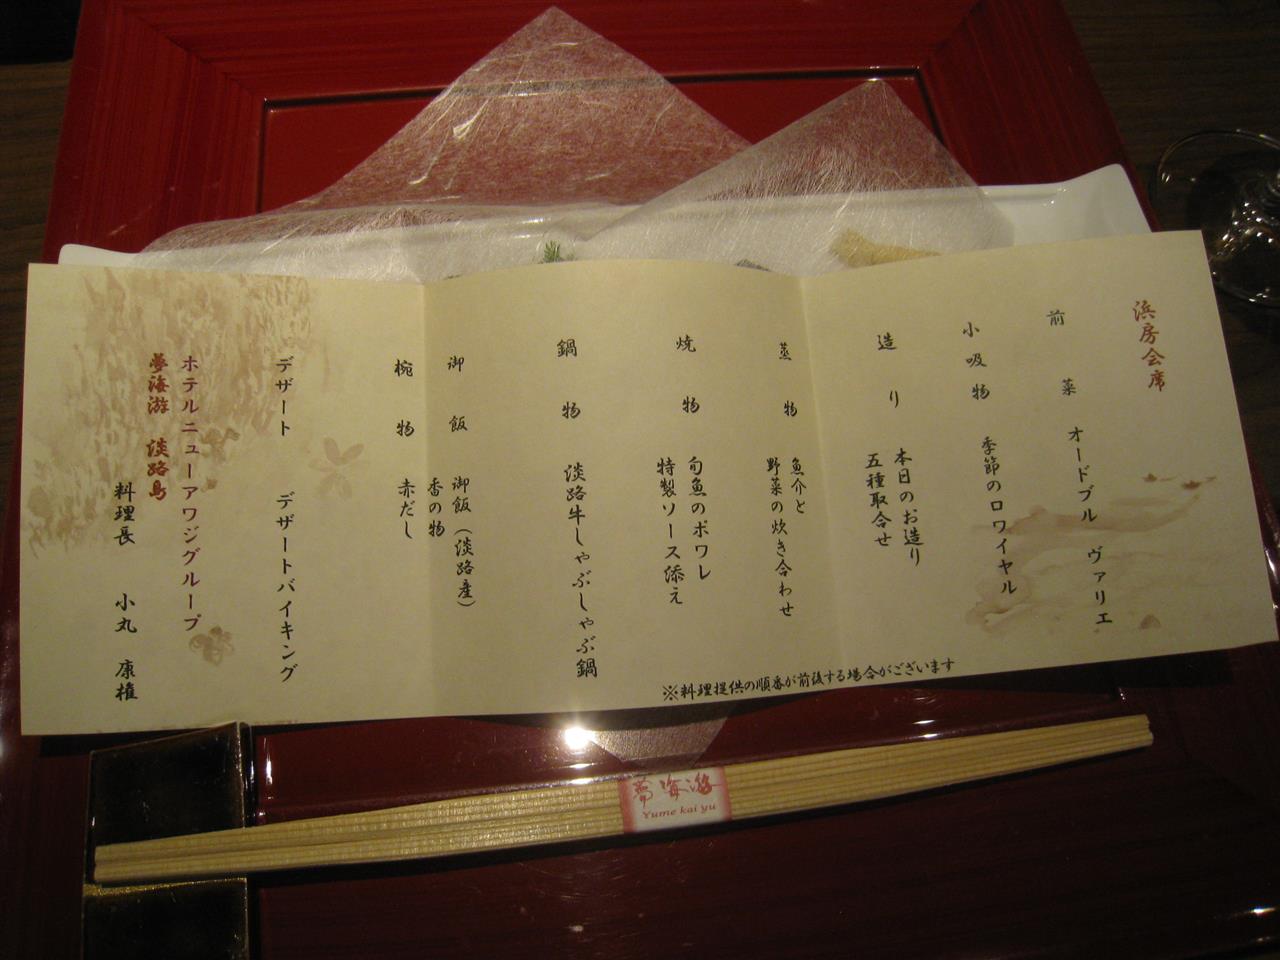 浜房会席
前菜 オードブル ヴァリエ
小吸物 季節のロワイヤル
造り 本日のお造り
五種取合せ
蒸物 魚介と
野菜の炊き合わせ
焼物 旬魚のポワレ
特製ソース添え
鍋物 淡路牛しゃぶしゃぶ鍋
御飯 御飯（淡路産）
香の物
椀物 赤だし
デザート デザートバイキング
ホテルニューアワジグループ
夢海游 淡路島
料理長 小丸 康権
※料理提供の順番が前後する場合がございます
夢海游
Yume kai yu